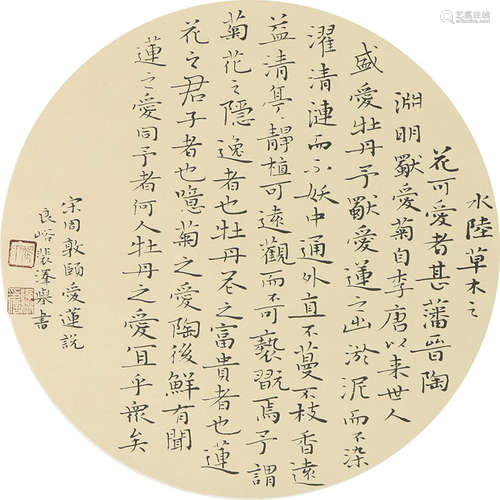 水陸草木之
花可愛者甚藩晉陶
淵明獨愛菊自李唐以來世人
盛愛牡丹予獨愛蓮之出淤泥而不染
濯清漣而不妖中通外直不蔓不枝香遠
益清亭〻靜植可遠觀而不可褻翫焉予謂
菊花之隱逸者也牡丹花之富貴者也蓮
花之君子者也噫菊之愛陶後鮮有聞
蓮之愛同予者何人牡丹之愛宜乎眾矣
宋周敦頤愛蓮說
良峪裴澤書
艺狐在线